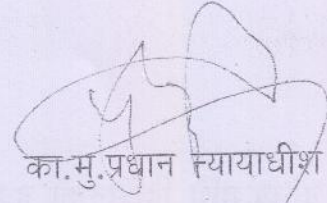 का.मु.प्रधान न्यायाधीश